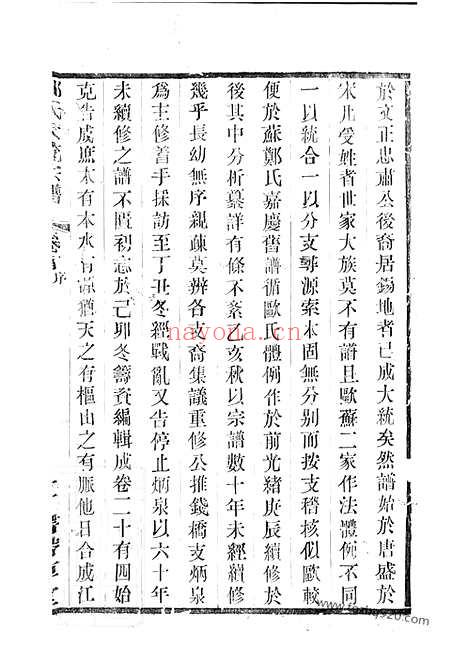 於文正忠肅公後裔居錫地者已成大統矣然譜始於唐盛於
宋凡受姓者世家大族莫不有譜且歐蘇二家作法體例不同
一以統合一以分支尋源索本固無分別而按支稽核似歐較
便於蘇鄭氏嘉慶舊譜循歐氏體例作於前光緒庚辰續修於
後其中分析綦詳有條不紊乙亥秋以宗譜數十年未經續修
幾乎長幼無序親疎莫辨各支裔集議重修公推錢橋支炳泉
爲主修着手採訪至丁丑冬經戰亂又告停止炳泉以六十年
未續修之譜不匱初志於己卯冬籌資編輯成卷二十有四始
克告成庶木有本水有源猶天之有樞山之有脈他日合成江
氏宗譜
卷首
序
nayona.cn